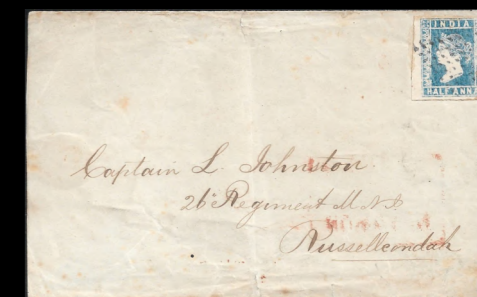 INDIA
HALF ANNA
Captain L. Johnston.
26 Regiment M N I
Russellcondah